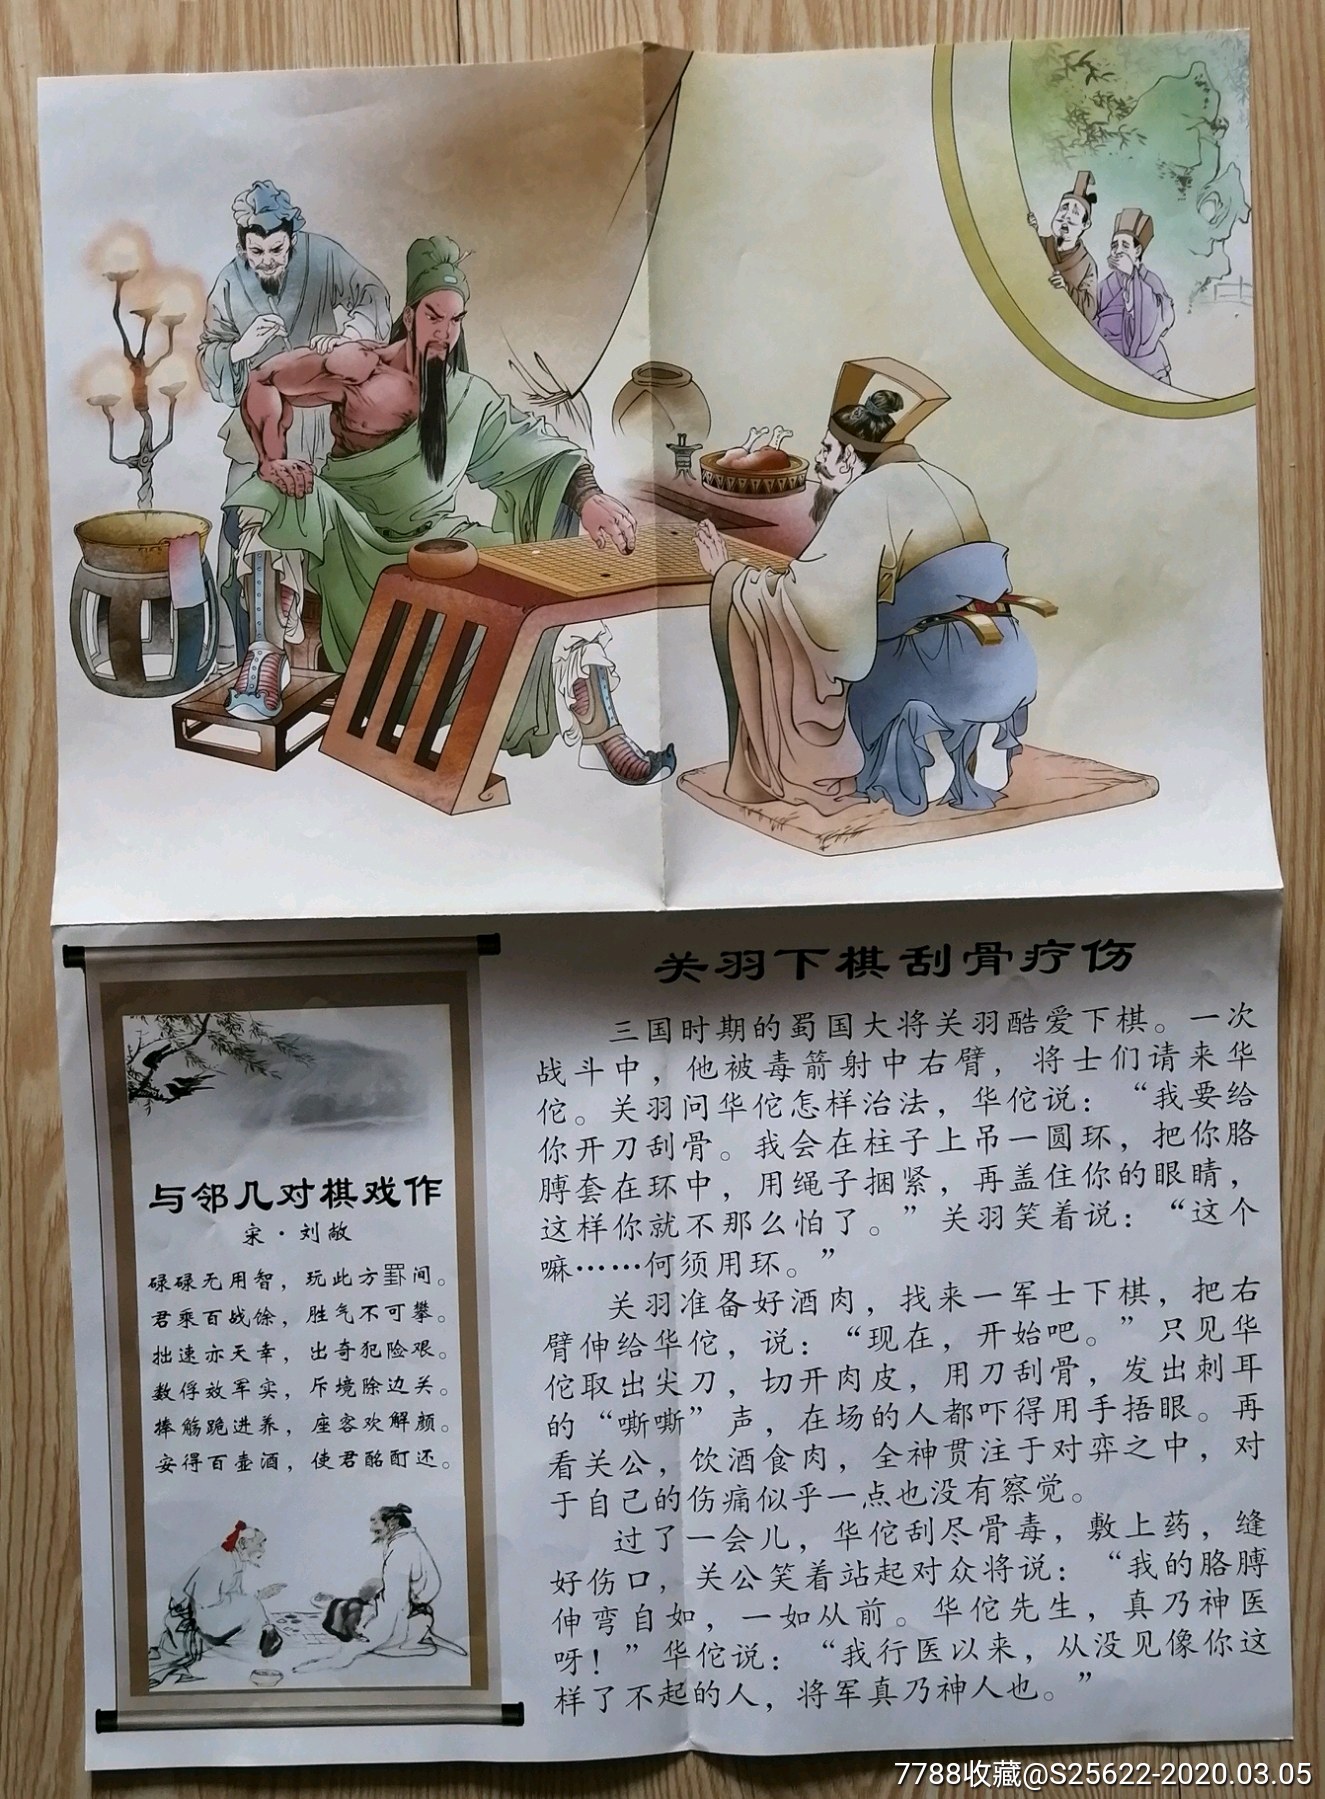 与邻几对棋戏作
宋·刘敞
碌碌无用智，玩此方罫间。
君乘百战馀，胜气不可攀。
拙速亦天幸，出奇犯险艰。
数俘效军实，斥境除边关。
捧觞跪进养，座客欢解颜。
安得百壶酒，使君酩酊还。
关羽下棋刮骨疗伤
三国时期的蜀国大将关羽酷爱下棋。一次
战斗中，他被毒箭射中右臂，将士们请来华
佗。关羽问华佗怎样治法，华佗说：“我要给
你开刀刮骨。我会在柱子上吊一圆环，把你胳
膊套在环中，用绳子捆紧，再盖住你的眼睛，
这样你就不那么怕了。”关羽笑着说：“这个
嘛……何须用环。”
关羽准备好酒肉，找来一军士下棋，把右
臂伸给华佗，说：“现在，开始吧。”只见华
佗取出尖刀，切开肉皮，用刀刮骨，发出刺耳
的“嘶嘶”声，在场的人都吓得用手捂眼。再
看关公，饮酒食肉，全神贯注于对弈之中，对
于自己的伤痛似乎一点也没有察觉。
过了一会儿，华佗刮尽骨毒，敷上药，缝
好伤口，关公笑着站起对众将说：“我的胳膊
伸弯自如，一如从前。华佗先生，真乃神医
呀！”华佗说：“我行医以来，从没见像你这
样了不起的人，将军真乃神人也。”
7788收藏@S25622-2020.03.05